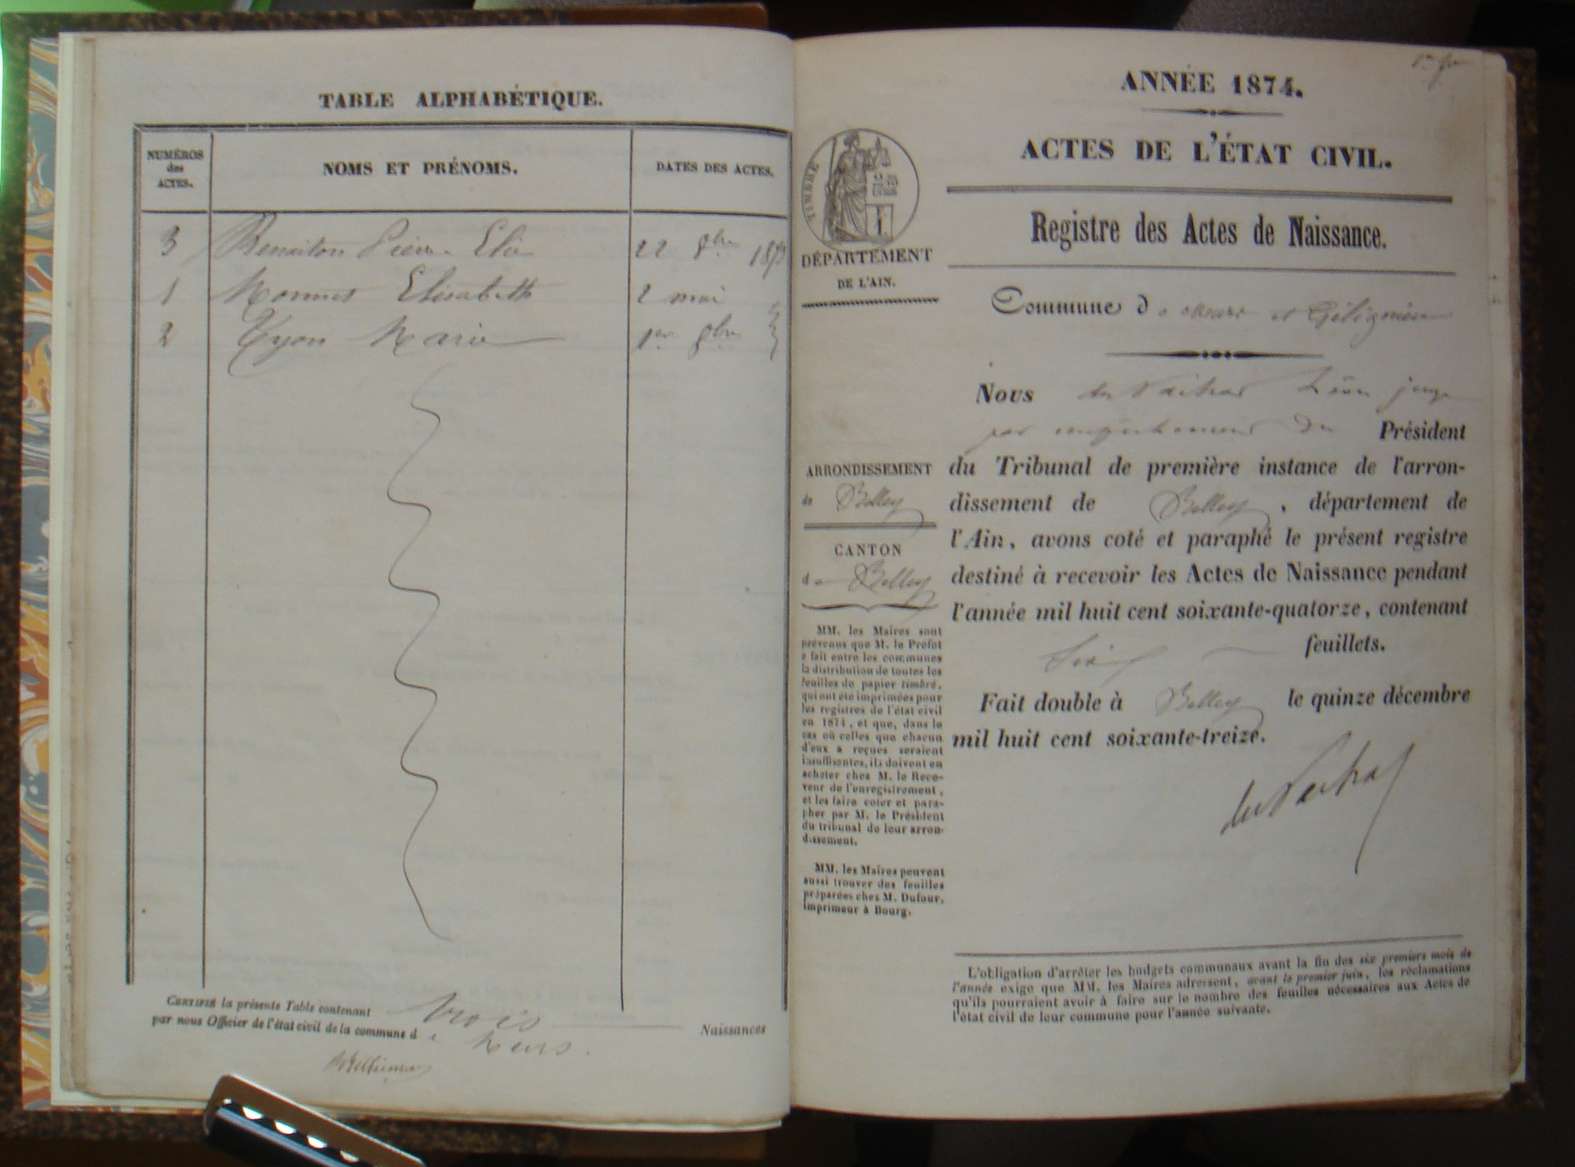 TABLE ALPHABÉTIQUE.
NUMÉROS
des
ACTES.
NOMS ET PRÉNOMS.
DATES DES ACTES.
3 Pierre Elie 22 8bre 1873
1 Elisabeth 2 mai
2 Tyon Marie 1er 8bre
CERTIFIÉ la présente Table contenant trois Naissances
par nous Officier de l'état civil de la commune d
1er fet
ANNÉE 1874.
ACTES DE L'ÉTAT CIVIL.
Registre des Actes de Naissance.
TIMBRE
DÉPARTEMENT
DE L'AIN.
Commune de et
Nous Léon juge
par empêchement du Président
du Tribunal de première instance de l'arron-
dissement de Belley, département de
l'Ain, avons coté et paraphé le présent registre
destiné à recevoir les Actes de Naissance pendant
l'année mil huit cent soixante-quatorze, contenant
feuillets.
Fait double à Belley le quinze décembre
mil huit cent soixante-treize.
ARRONDISSEMENT
de Belley
CANTON
de Belley
MM. les Maires sont
prévenus que M. le Préfet
a fait entre les communes
la distribution de toutes les
feuilles de papier timbré,
qui ont été imprimées pour
les registres de l'état civil
en 1874, et que, dans le
cas où celles que chacun
d'eux a reçues seraient
insuffisantes, ils doivent en
acheter chez M. le Rece-
veur de l'enregistrement,
et les faire coter et para-
pher par M. le Président
du tribunal de leur arron-
dissement.
MM. les Maires peuvent
aussi trouver des feuilles
préparées chez M. Dufour,
imprimeur à Bourg.
L'obligation d'arrêter les budgets communaux avant la fin des six premiers mois de
l'année exige que MM. les Maires adressent, avant le premier juin, les réclamations
qu'ils pourraient avoir à faire sur le nombre des feuilles nécessaires aux Actes de
l'état civil de leur commune pour l'année suivante.